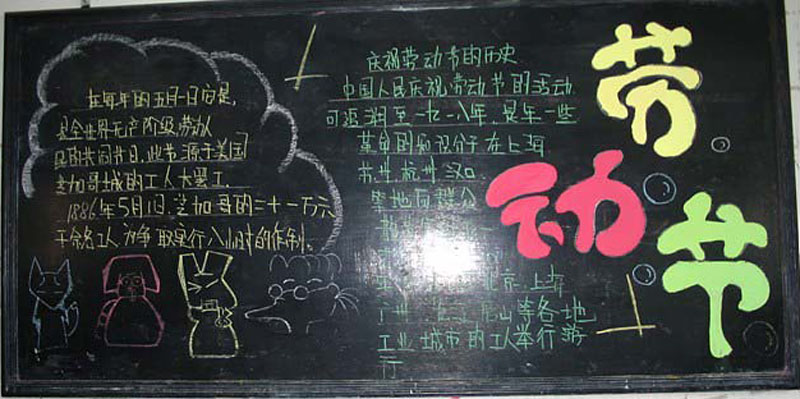 在每年的五月一日它是,
是全世界无产阶级,劳动人
民的共同节日,此节源于美国
芝加哥城的工人大罢工.
1886年5月1日,芝加哥的二十一万六
千余名工人为争取实行八小时的工作制。
庆祝劳动节的历史
中国人民庆祝劳动节的活动
可追溯至一九一八年,是年一些
革命的知识分子在上海
苏州 杭州 汉口
等地向群分
北京,上海
广州 唐山等各地
工业城市的工人举行游
行
劳
动
节